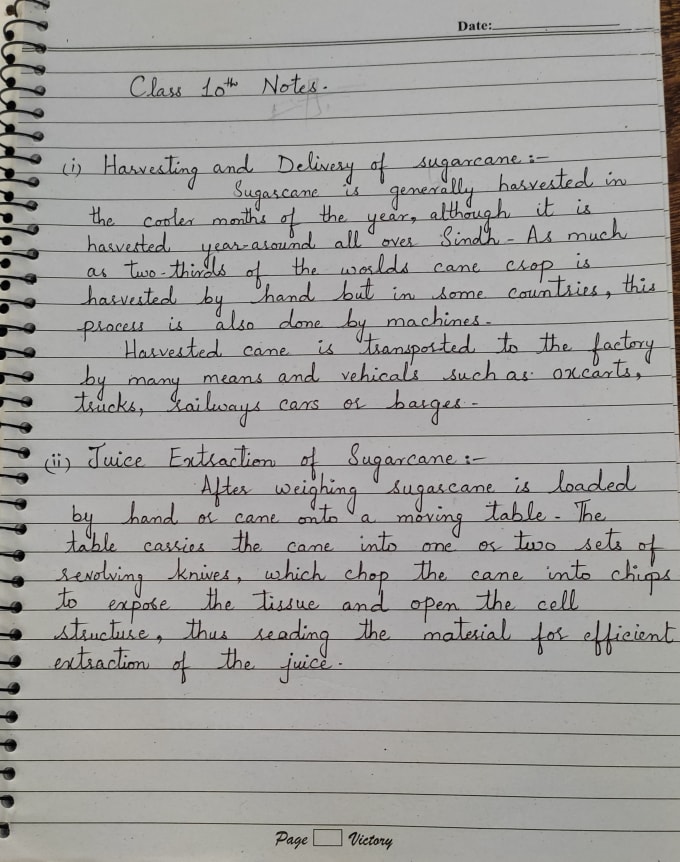 Date:
Class 10th Notes.
(i) Harvesting and Delivery of sugarcane :-
Sugarcane is generally harvested in
the cooler months of the year, although it is
harvested year-around all over Sindh - As much
as two-thirds of the worlds cane crop is
harvested by hand but in some countries, this
process is also done by machines -
Harvested cane is transported to the factory
by many means and vehicals such as oxcarts,
trucks, railways cars or barges -
(ii) Juice Extraction of Sugarcane :-
After weighing sugarcane is loaded
by hand or cane onto a moving table - The
table carries the cane into one or two sets of
revolving knives, which chop the cane into chips
to expose the tissue and open the cell
structure, thus reading the material for efficient
extraction of the juice.
Page Victory